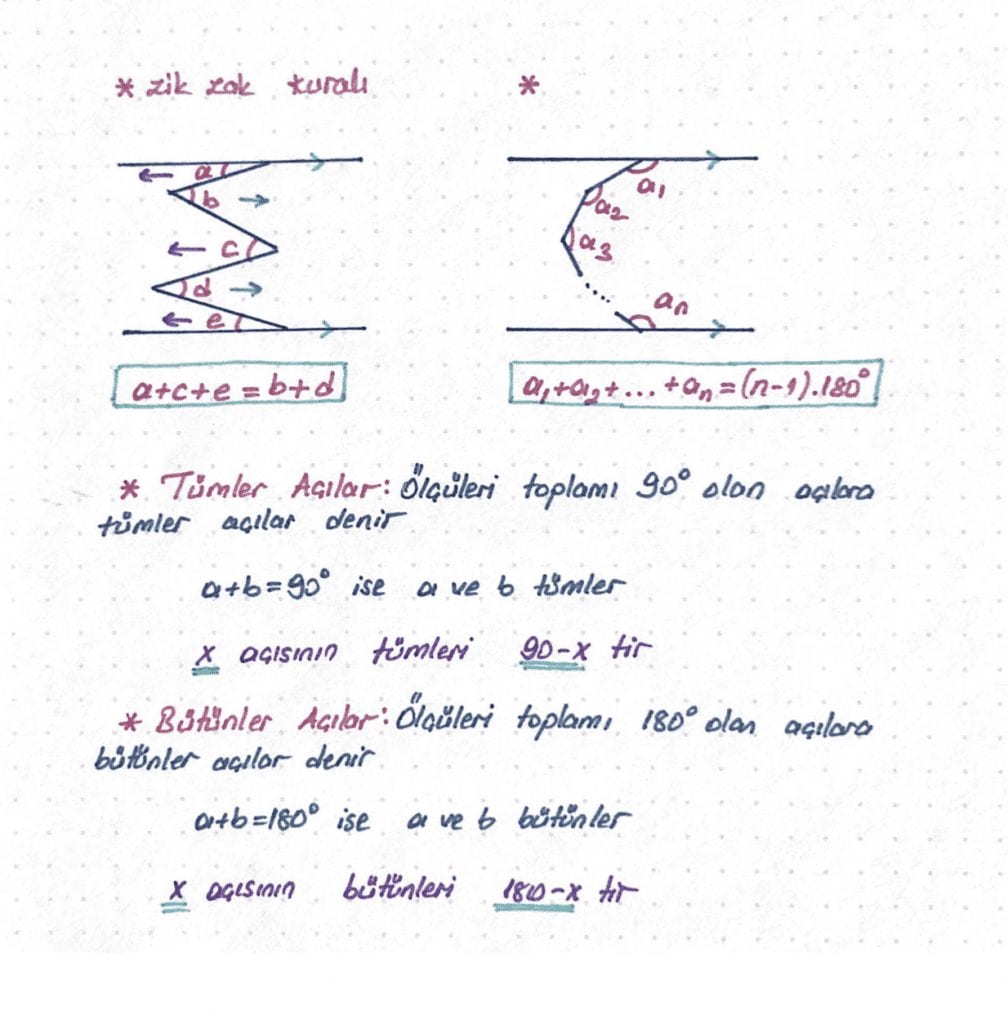 * zik zak kuralı
*
a
b
c
d
e
a₁
a₂
a₃
....
aₙ
a+c+e=b+d
a₁+a₂+...+aₙ=(n-1).180°
* Tümler Açılar: Ölçüleri toplamı 90° olan açılara
tümler açılar denir
a+b=90° ise a ve b tümler
x açısının tümleri 90-x tir
* Bütünler Açılar: Ölçüleri toplamı 180° olan açılara
bütünler açılar denir
a+b=180° ise a ve b bütünler
x açısının bütünleri 180-x tir